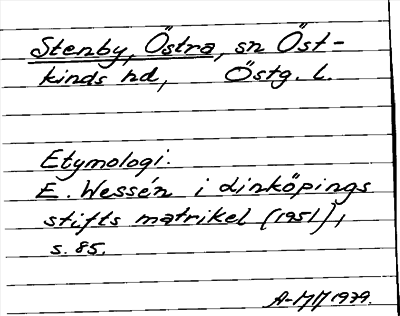 Stenby, Östra, sn Öst-
kinds hd, Östg. l.
Etymologi:
E. Wessén i Linköpings
stifts matrikel (1951),
s. 85.
1979.